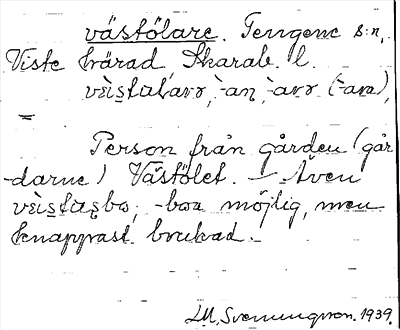 västölare. Tengene s:n,
Viste härad, Skarab. l.
vèistalarɿ, -aɳ, -arɿ (-ara),
=
Person från gården (går-
darne) Västölet. – Även
vèistaʂbo, -boa möjlig, men
knappast brukad. –
LM, Svenungson. 1939.